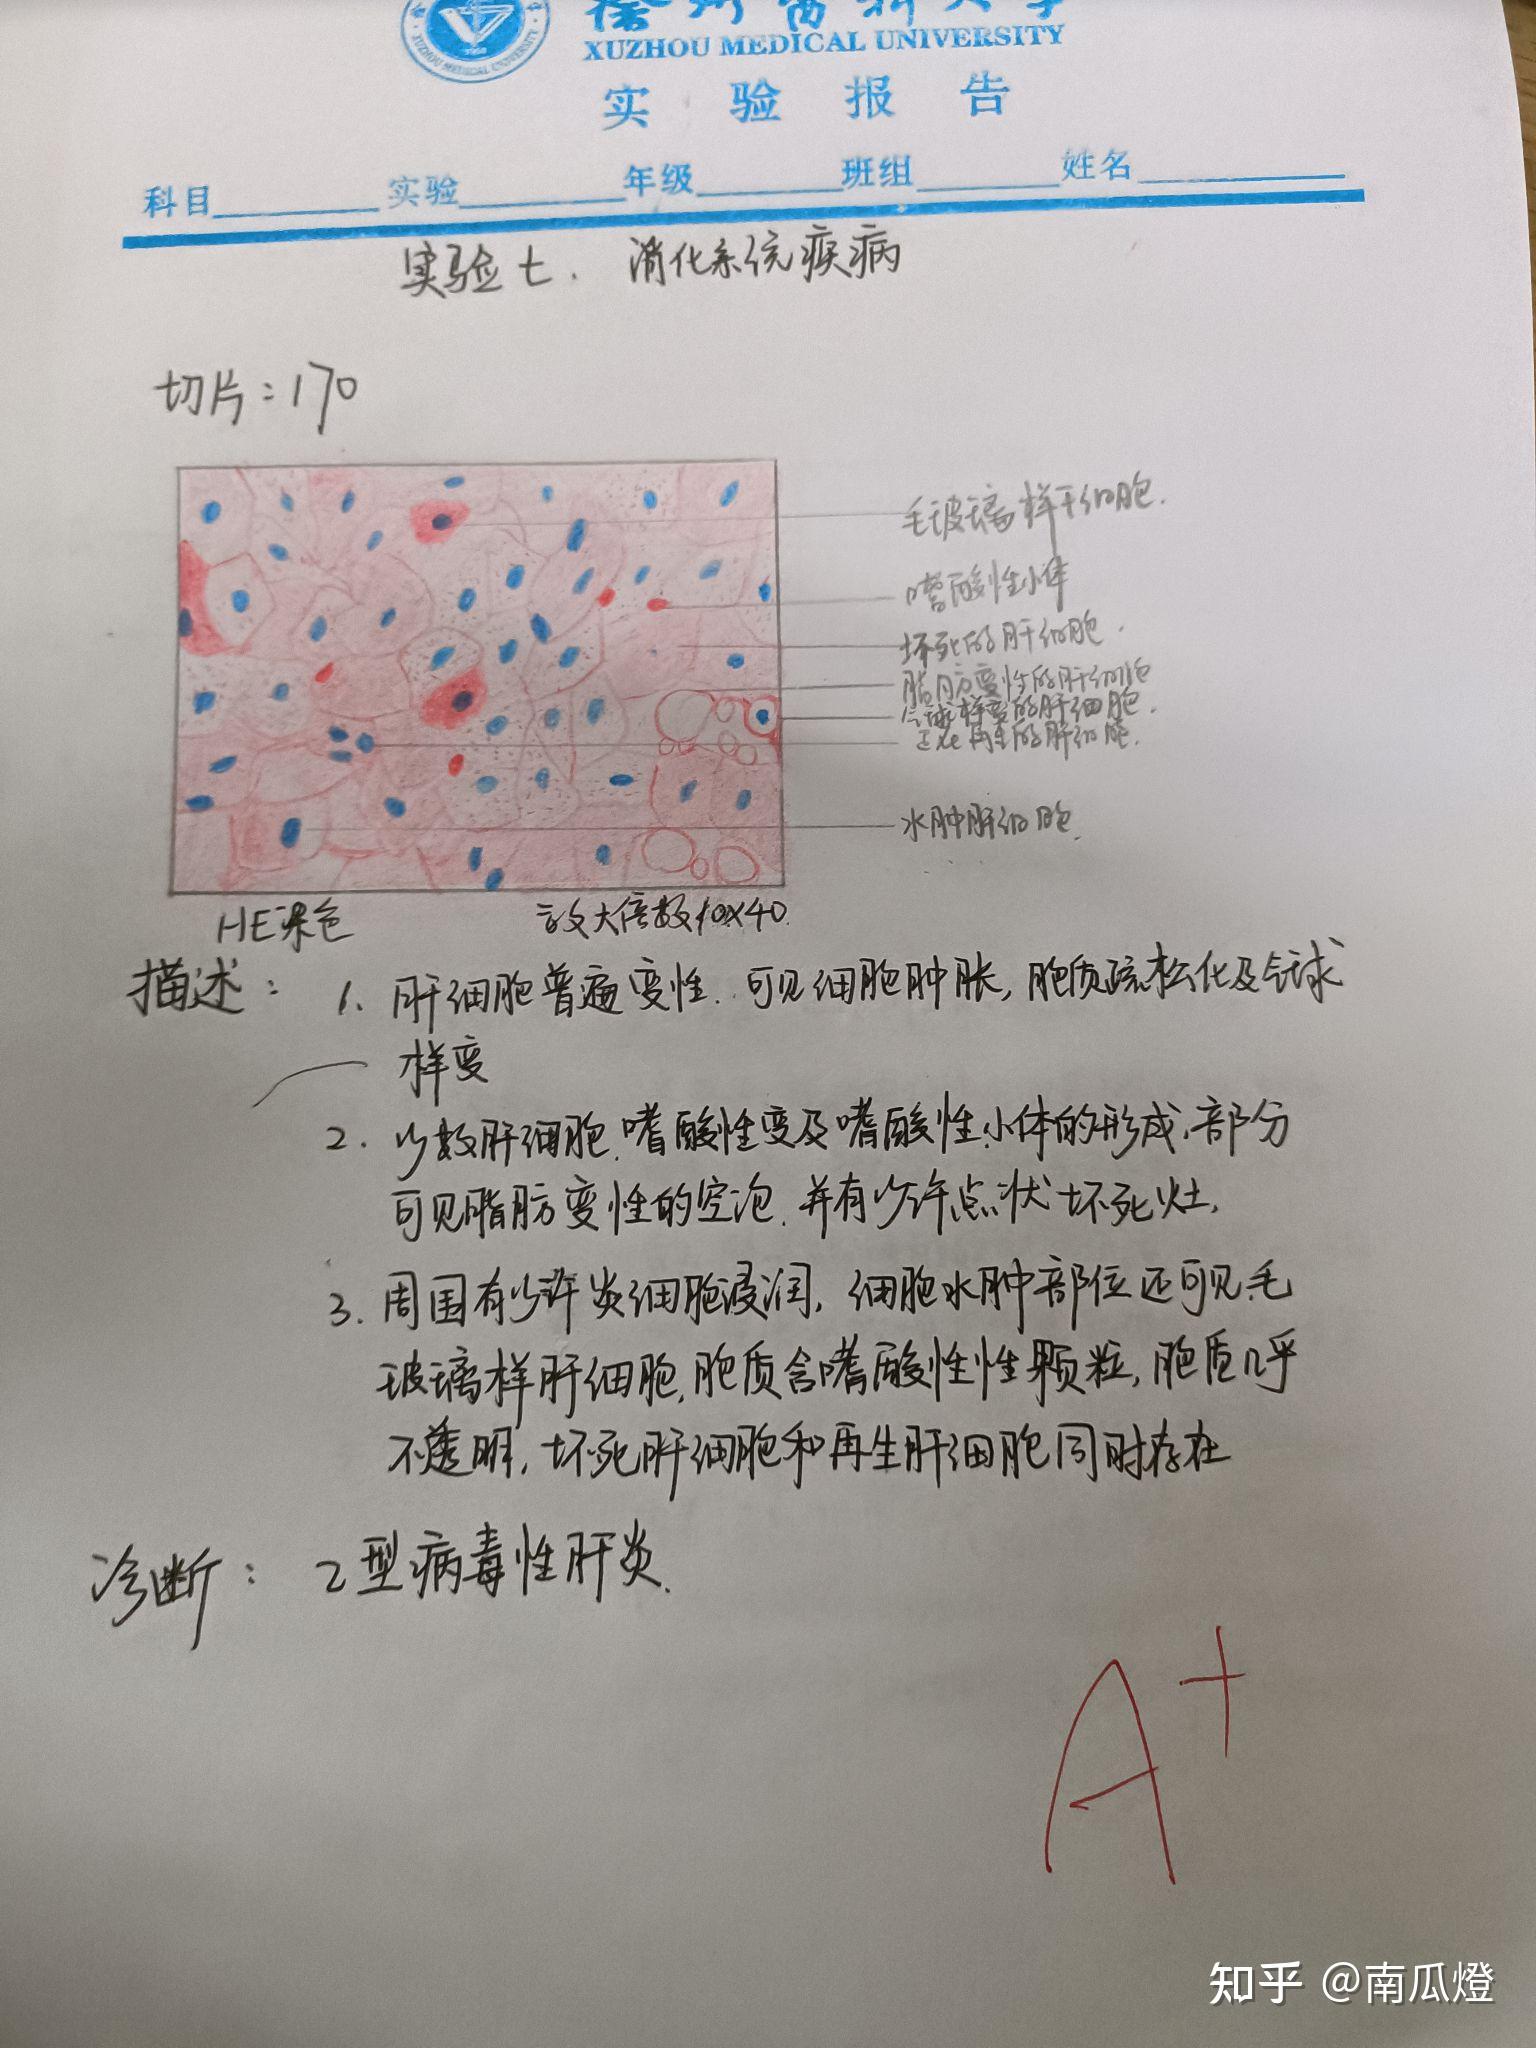 徐州医科大学
XUZHOU MEDICAL UNIVERSITY
实验报告
科目 实验 年级 班组 姓名
实验七. 消化系统疾病
切片:170
毛玻璃样干细胞.
嗜酸性小体
坏死的肝细胞.
脂肪变性的肝细胞
气球样变的肝细胞.
正在再生的肝细胞.
水肿肝细胞.
HE染色 放大倍数10X40.
描述: 1. 肝细胞普遍变性. 可见细胞肿胀, 胞质疏松化及气球
样变
2. 少数肝细胞.嗜酸性变及嗜酸性小体的形成,部分
可见脂肪变性的空泡.并有少许点状坏死灶.
3. 周围有少许炎细胞浸润, 细胞水肿部位还可见毛
玻璃样肝细胞,胞质含嗜酸性性颗粒, 胞质几乎
不透明, 坏死肝细胞和再生肝细胞同时存在
诊断: 乙型病毒性肝炎.
A+
知乎 @南瓜燈